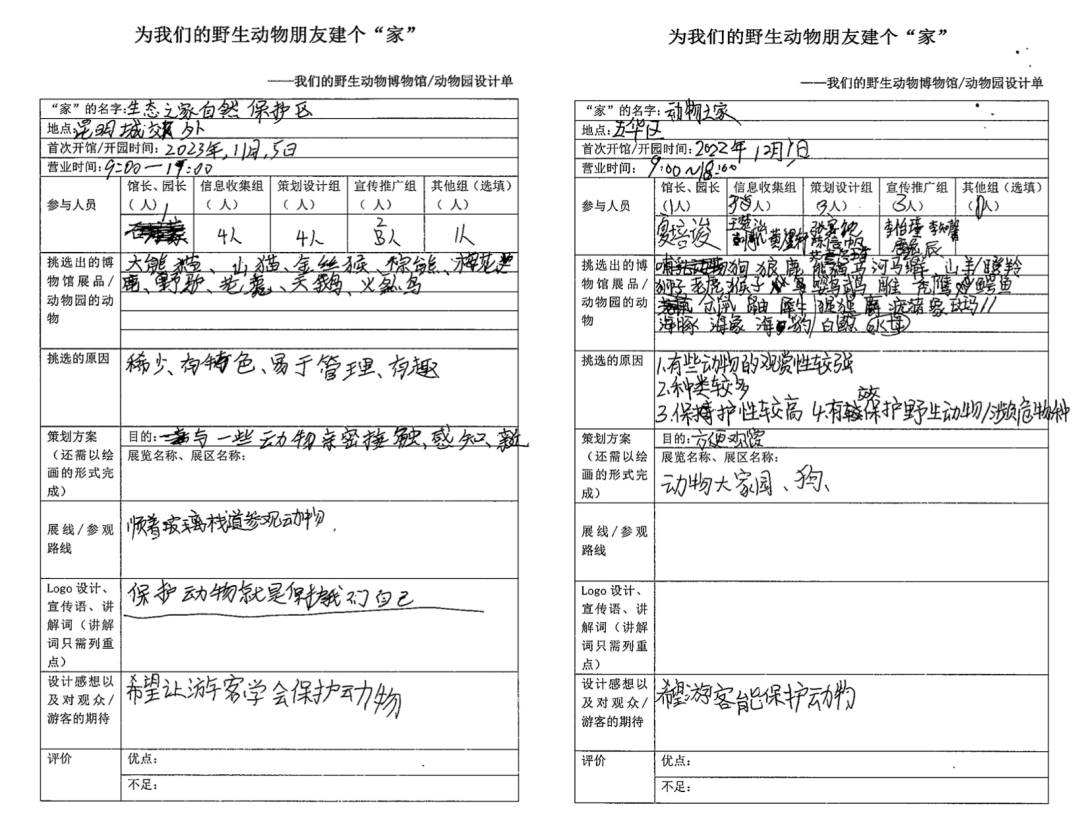 为我们的野生动物朋友建个“家”
——我们的野生动物博物馆/动物园设计单
“家”的名字：生态之家自然保护区
地点：昆明城郊外
首次开馆/开园时间：2023年，11月，5日
营业时间：9:00—17:00
参与人员
馆长、园长（1人）
信息收集组（ 人）
策划设计组（ 人）
宣传推广组（ 人）
其他组（选填）（ 人）
4人
4人
3人
1人
挑选出的博物馆展品/动物园的动物
大熊猫、山猫、金丝猴、棕熊、梅花
鹿、野驴、老鹰、天鹅、火烈鸟
挑选的原因
稀少、有特色、易于管理、有趣
策划方案（还需以绘画的形式完成）
目的：与一些动物亲密接触、感知、
展览名称、展区名称：
展线/参观路线
顺着玻璃栈道参观动物.
Logo设计、宣传语、讲解词（讲解词只需列重点）
保护动物就是保护我们自己
设计感想以及对观众/游客的期待
希望让游客学会保护动物
评价
优点：
不足：
为我们的野生动物朋友建个“家”
——我们的野生动物博物馆/动物园设计单
“家”的名字：动物之家
地点：五华区
首次开馆/开园时间：2022年12月1日
营业时间：9:00~18:00
参与人员
馆长、园长（1人）
信息收集组（ 人）
策划设计组（3人）
宣传推广组（3人）
其他组（选填）（ 人）
挑选出的博物馆展品/动物园的动物
狗 狼 鹿 熊猫 马 河马 山羊/羚羚
狮子 老虎 猴子 鹦鹉 雕 老鹰 鳄鱼
仓鼠 犀牛 猩猩 疣猪 家 斑马//
海豚 海象 海狗 白鲸（水里）
挑选的原因
1.有些动物的观赏性较强
2.种类较多
3.保护性较高 4.有效保护野生动物/濒危物种
策划方案（还需以绘画的形式完成）
目的：方便观赏
展览名称、展区名称：
动物大家园、狗、
展线/参观路线
Logo设计、宣传语、讲解词（讲解词只需列重点）
设计感想以及对观众/游客的期待
希望游客能保护动物
评价
优点：
不足：